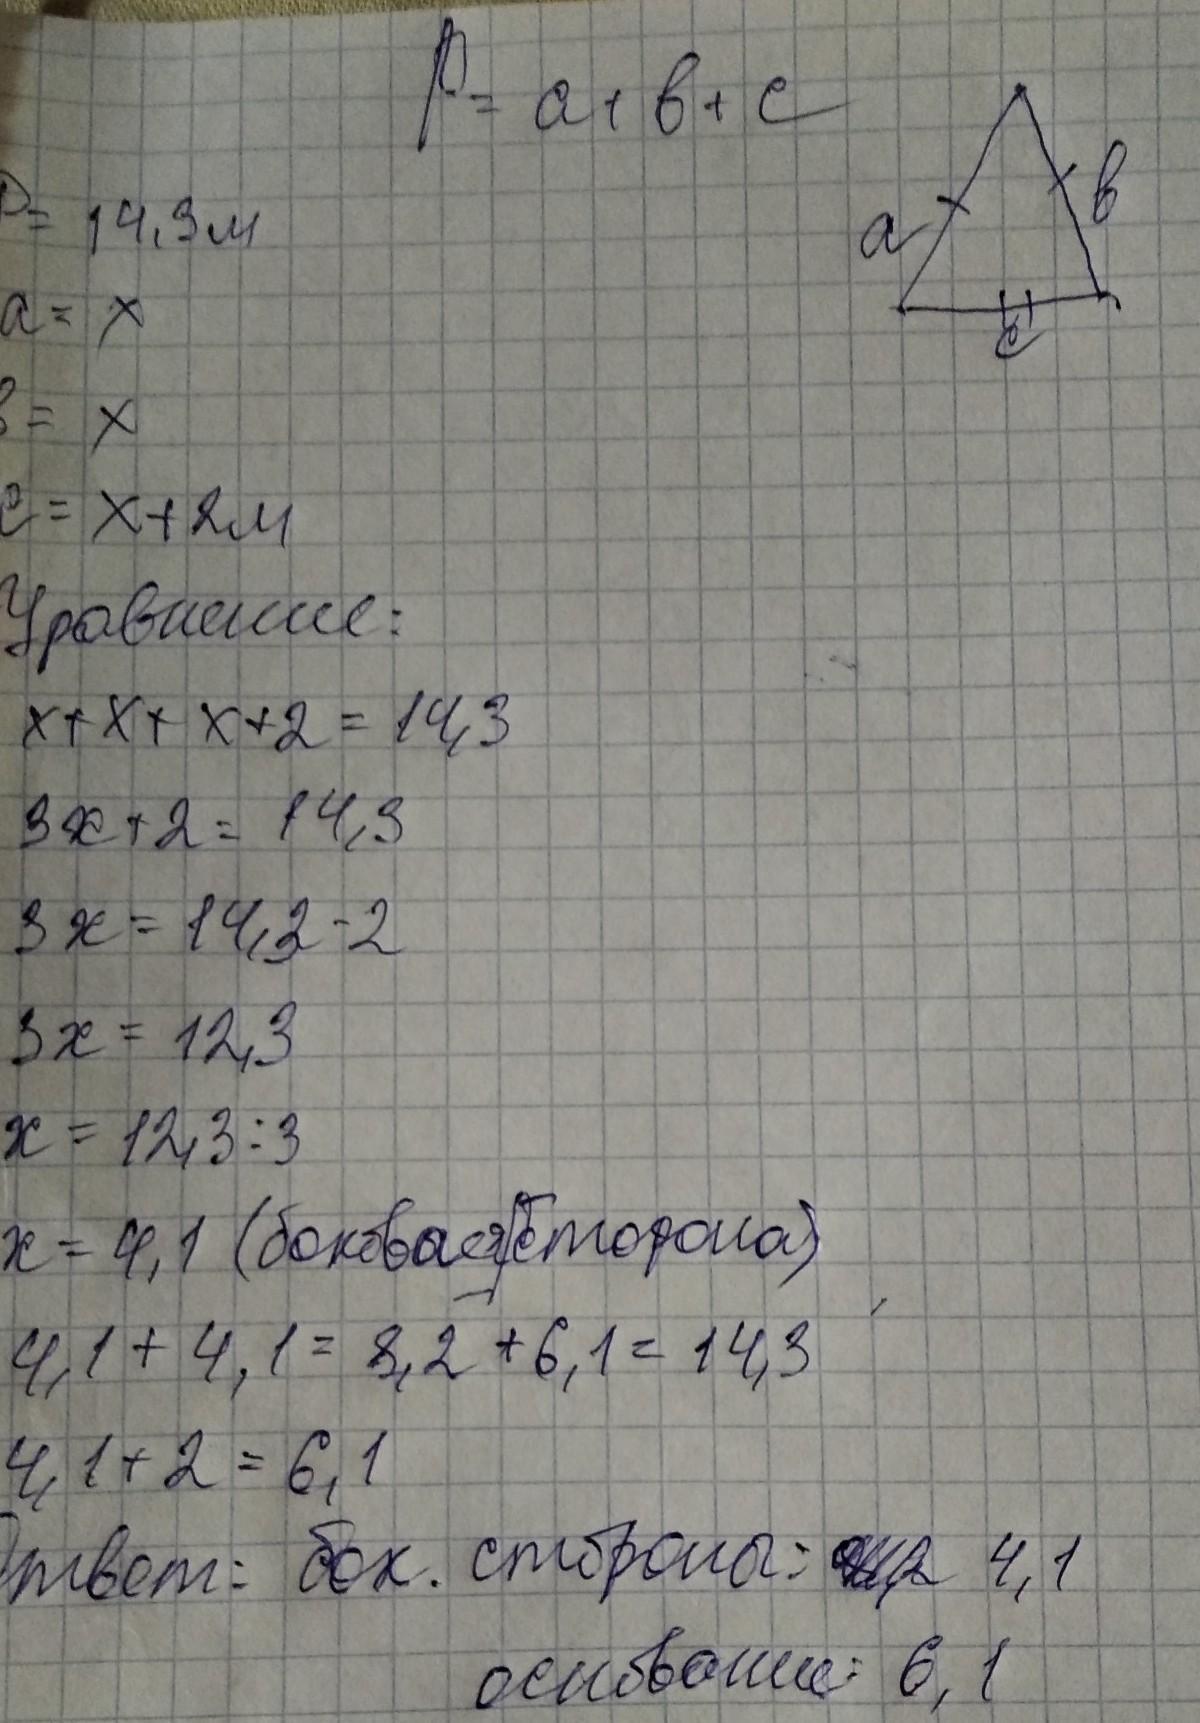 P = a + b + c
a
b
c
P = 14,3м
a = x
b = x
c = x + 2м
Уравнение:
x + x + x + 2 = 14,3
3x + 2 = 14,3
3x = 14,3 - 2
3x = 12,3
x = 12,3 : 3
x = 4,1 (боковая сторона)
4,1 + 4,1 = 8,2 + 6,1 = 14,3
4,1 + 2 = 6,1
Ответ: бок. стороны: 4,1
основание: 6,1